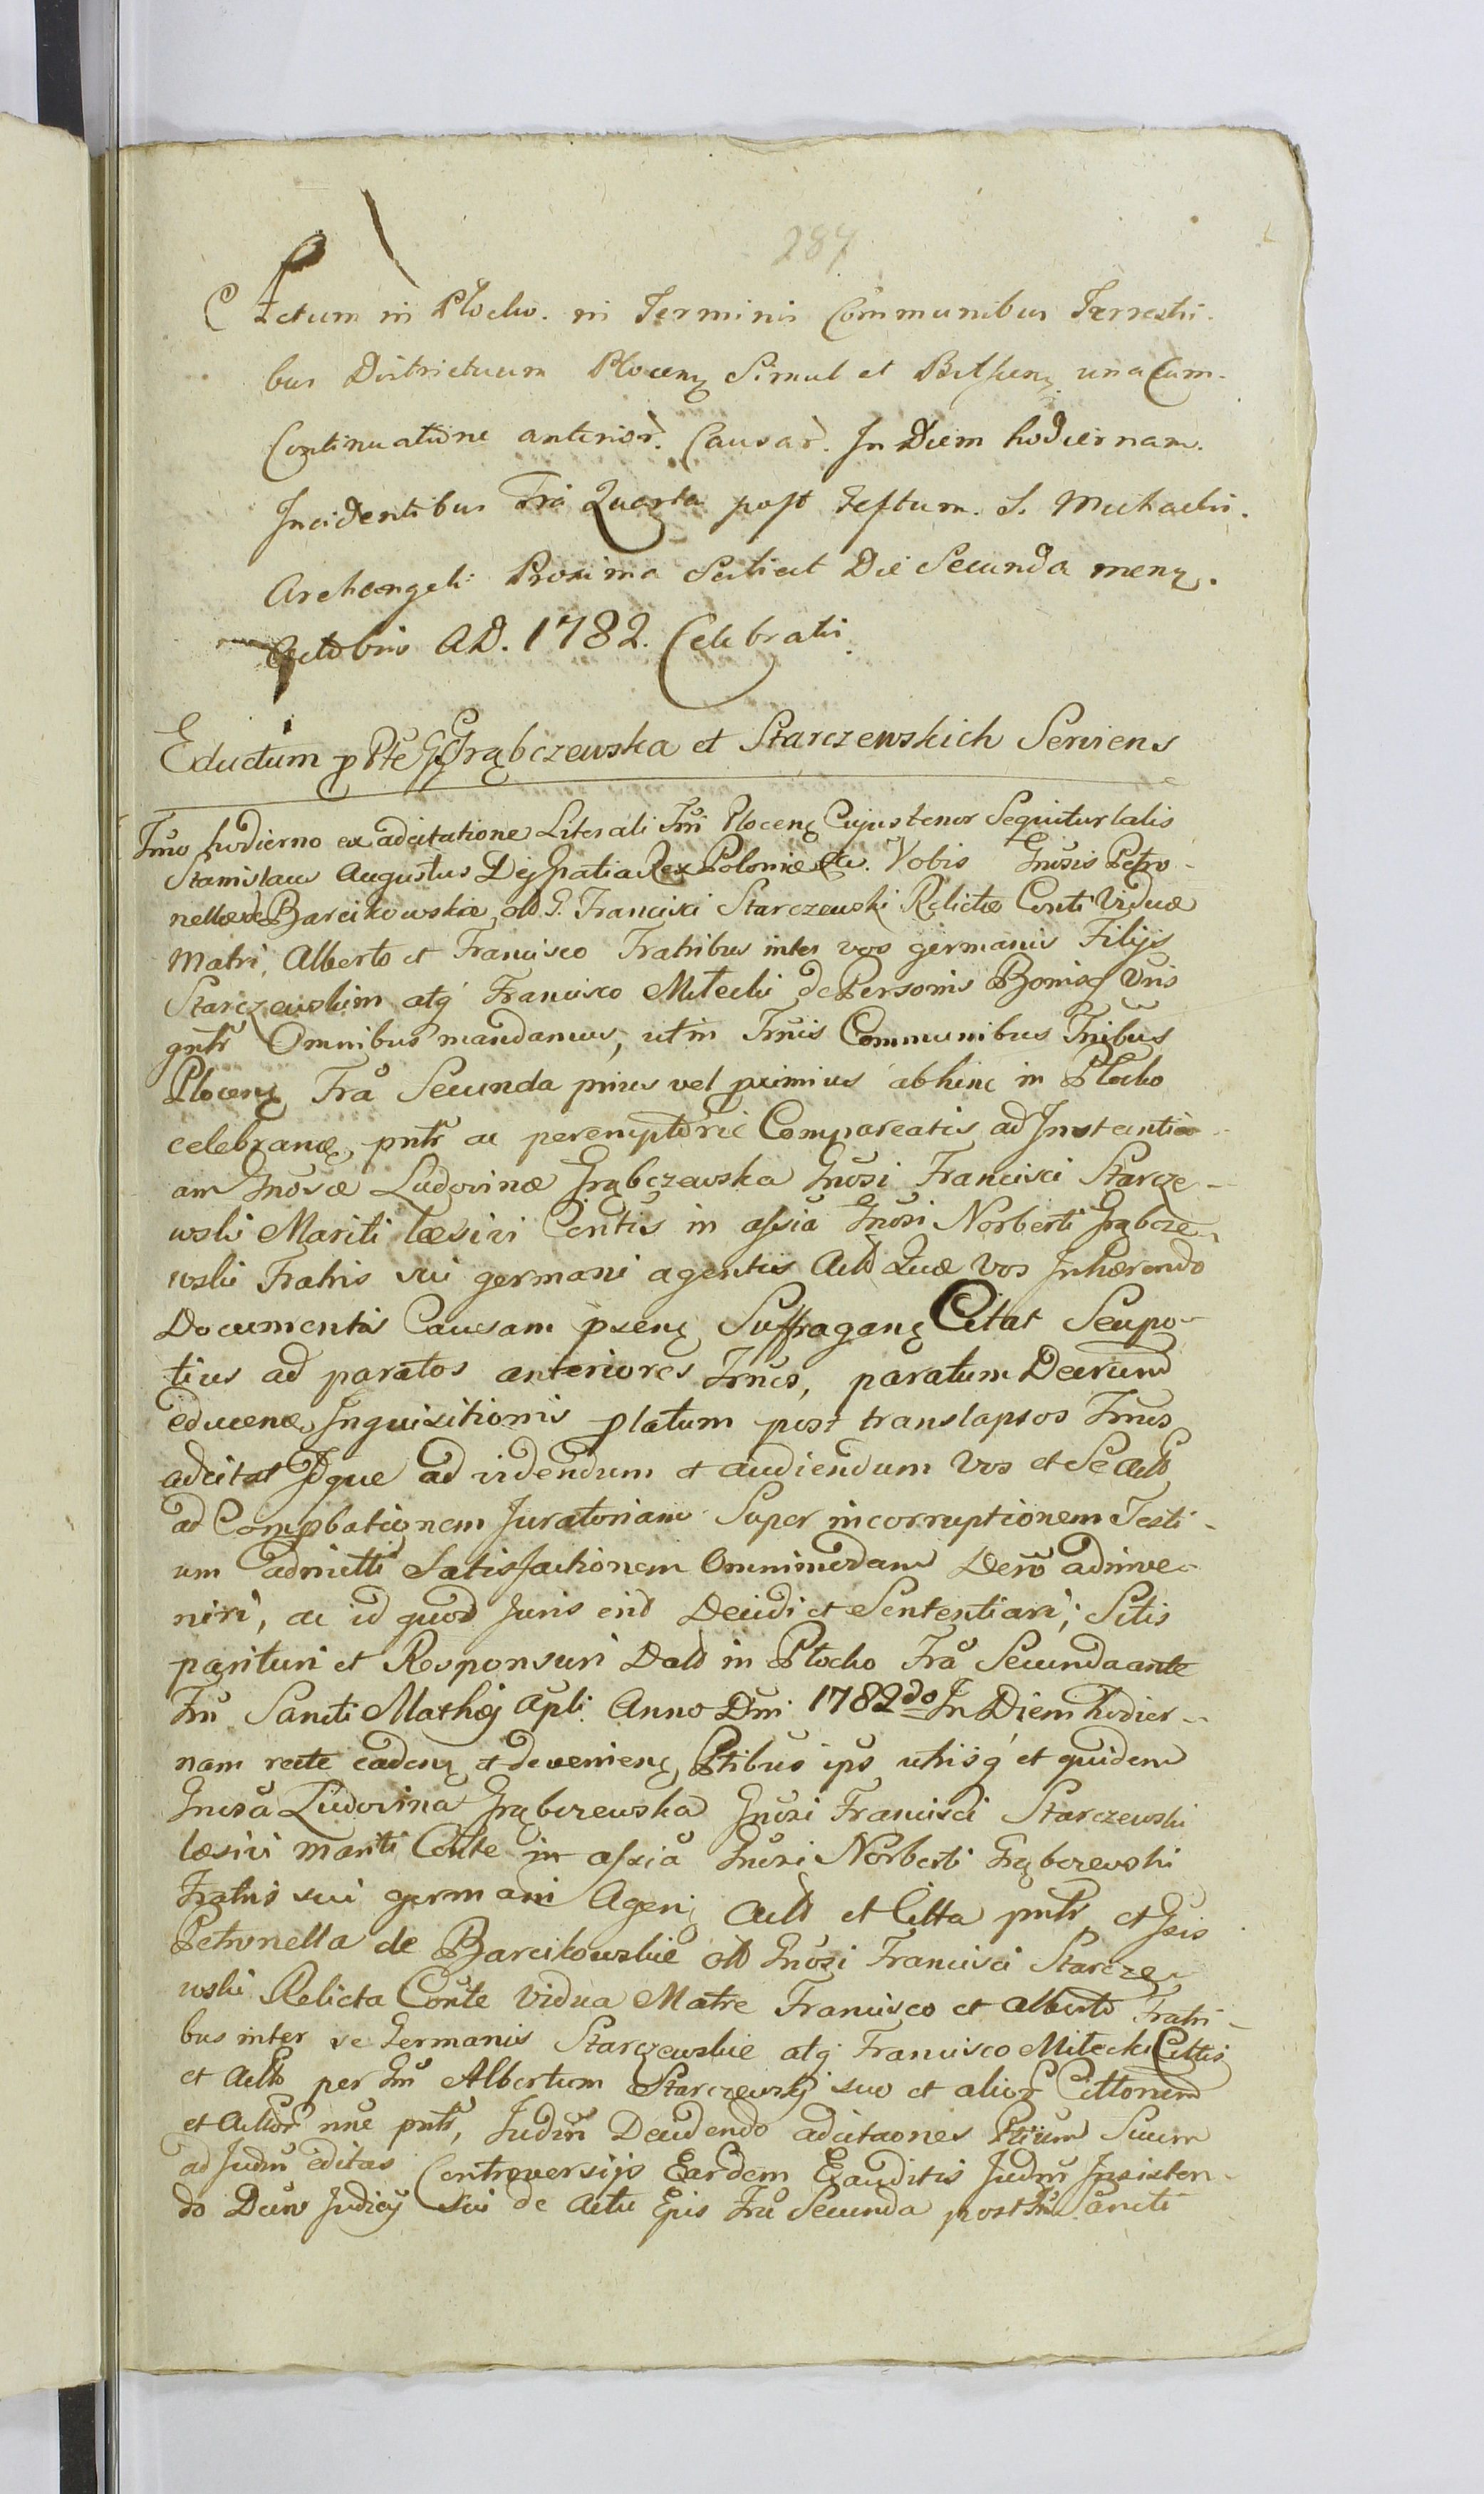 284
Actum in Płocko. in Terminis Communibus Terrestri.
bus Districtuum Plocenȝ Simul et Bielscenȝ una Cum-
Continuatione anterior. Causar. In Diem hodiernam.
Incidentibus Fria Quarta post Festum. S. Michaelis.
Archangeli Proxima Scilicet Die Secunda menȝ.
Octobris AD. 1782. Celebratis.
Eductum p Pte GGrąbczewska et Starczewskich Serviens
Tmo hodierno ex adcitatione Literali Tri Plocenȝ Cujus tenor Sequitur talis
Stanislaus Augustus Dej Gratia Rex Poloniæ etc. Vobis Gnosis Petro-
nellæ de Barcikowskie olb G. Francisci Starczewski Relictæ Conti Viduæ
Matri, Alberto et Francisco Fratribus inter vos germanis Filijs
Starczewskim atq́ Francisco Miłecki de Personis Bonisq Vris
gnłr Omnibus mandamus, ut in Tmis Communibus Tribus
Plocenȝ Fra Secunda prius vel proximius abhinc in Płocko
celebranȝ, pntr ac peremptorie Compareatis ad Instantia-
am Gnosæ Ludovinæ Grąbczewska Gnosi Francisci Starcze-
wski Mariti læsivi Contis in assia Gnosi Norberti Grąbcze-
wski Fratris sui germani agentis Acto Quæ Vos Inhærendo
Documentis Causam psenȝ Suffraganȝ Citat Seu po-
tius ad paratos anteriores Tmos, paratum Decrum
educenæ Inquisitionis platum post translapsos Tmos
adcitat Idque ad videndum et audiendum Vos et Se
ad Compbationem Juratoriam Super incorruptionem Testi-
um admitti Satisfactionem Omnimodam Dero adinve-
niri, ac id quod Juris erit Decidi et Sententiari; Sitis
parituri et Responsuri Datt in Płocko Fra Secunda ante
Fm Sancti Mathæj Apli Anno Dni 1782do In Diem hodier-
nam recte cadenȝ et devenienȝ, Ptibus ips utrisq́ et quidem
Gnosa Ludovina Grąbczewska Gnosi Francisci Starczewski
læsivi mariti Conte in assia Gnosi Norberti Grąbczewski
Fratris sui germani Agenȝ et Citta pntr et Gsis
Petronella de Barcikowskie olb Gnosi Francisci Starcze-
wski Relicta Conte Vidua Matre Francisco et Alberto Fratri-
bus inter se Germanis Starczewskie atq́ Francisco Miłecki Cittis
et per Gm Albertum Starczewskj suo et alior Cittorum
et Actor nne pntr, Judm Decidendo adcitaones Ptium Suum
ad Judm editas Controversijs Eardem Exauditis Judm Insisten-
do Decro Judicij Sui de Actu Epis Fra Secunda post Fm Sancti